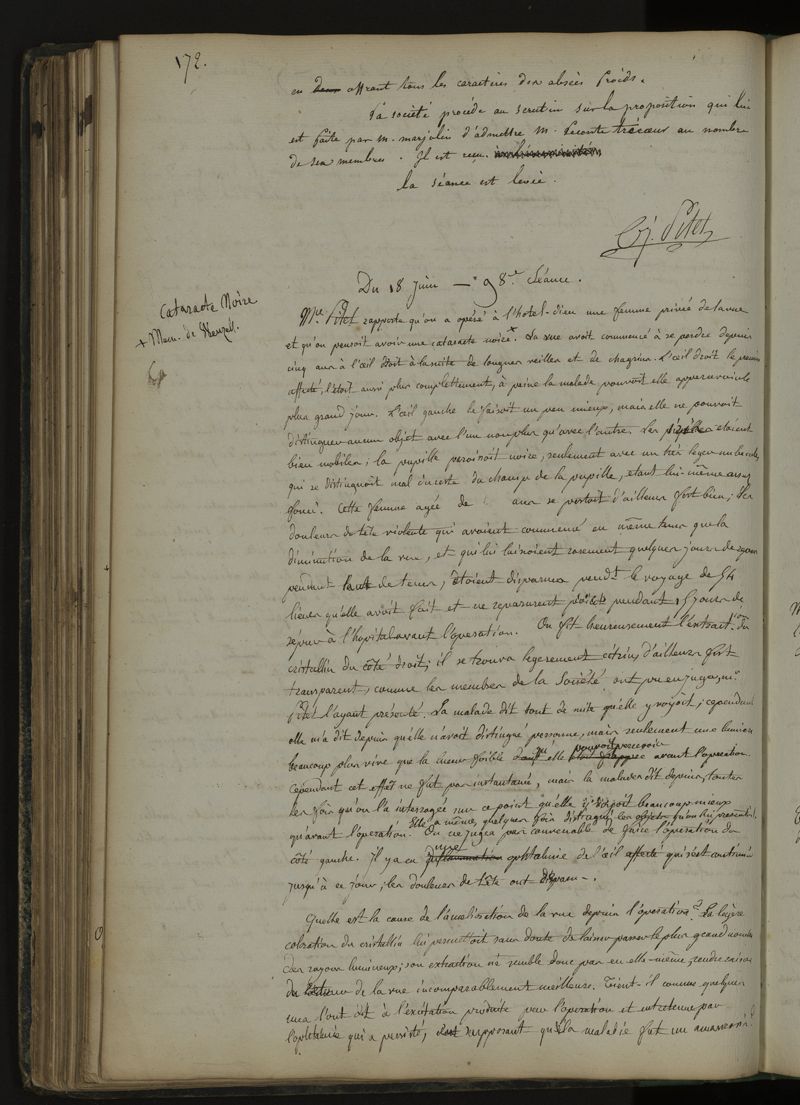 172.
en offrant tous les caractères des abscès froids.
La société procède au scrutin sur la proposition qui lui
est faite par m. marjolin d'admettre M. Leconte trécœur au nombre
de ses membres. Il est reçu.
la séance est levée.
Pitet
Du 18 Juin — 98.e Séance.
Cataracte Noire
+ Mem. de Wenzel.
Mr. Pitet rapporte qu'on a opéré à l'hotel-dieu une femme privée de la vue
et qu'on pensoit avoir une cataracte noire +. La vue avoit commencé à se perdre depuis
cinq ans à l'œil droit à la suite de longues veilles et de chagrins. L'œil droit le premier
affecté, l'étoit aussi plus complettement, à peine la malade pouvoit elle appercevoir le
plus grand jour. L'œil gauche le faisoit un peu mieux, mais elle ne pouvoit
distinguer aucun objet avec l'un non plus qu'avec l'autre. Les pupilles etoient
bien mobiles; la pupille paroissoit noire, seulement avec un très leger nubecule,
qui se distinguoit mal du reste du champ de la pupille, etant lui-même assez
foncé. Cette femme agée de ans se portoit d'ailleurs fort bien; des
douleurs de tête violente qui avoient commencé en même tems que la
diminution de la vue, et qui lui laissoient rarement quelques jours de repos
pendant tant de tems, étoient disparues pend.t le voyage de 54
lieues qu'elle avoit fait et ne reparurent point pendant 15 jours de
séjour à l'hopital avant l'operation. On fit heureusement l'extract.on du
cristallin du côté droit; il se trouva legerement citrin, d'ailleurs fort
transparent, comme les membres de la Société ont pu en juger, mr.
Pitet l'ayant présenté. La malade dit tout de suite qu'elle y voyoit; cependant
elle m'a dit depuis qu'elle n'avoit distingué personne, mais seulement une lumiere
beaucoup plus vive que la lueur foible qu'elle pouvoit percevoir avant l'operation.
Cependant cet effet ne fut pas instantané, mais la malade dit depuis, toutes
les fois qu'on l'a interrogée sur ce point qu'elle y voyoit beaucoup mieux
qu'avant l'opération. Elle a même, quelques fois distingué les objets qu'on lui présentoit.
On ne jugea pas convenable de faire l'opération du
côté gauche. Il y a eu une ophtalmie de l'œil affecté qui s'est continuée
jusqu'à ce jour; les douleurs de tête ont disparu.
Quelle est la cause de l'amélioration de la vue depuis l'operation? La légère
coloration du cristallin lui permettoit sans doute de laisser passer le plus grand nombre
des rayons lumineux; son extraction ne semble donc pas en elle-même, rendre raison
de la vue incomparablement meilleure. Tient-il comme quelques
uns l'ont dit à l'excitation produite par l'operation et entretenue par
l'ophtalmie qui a persisté, supposant que la maladie fut un amaurosis?